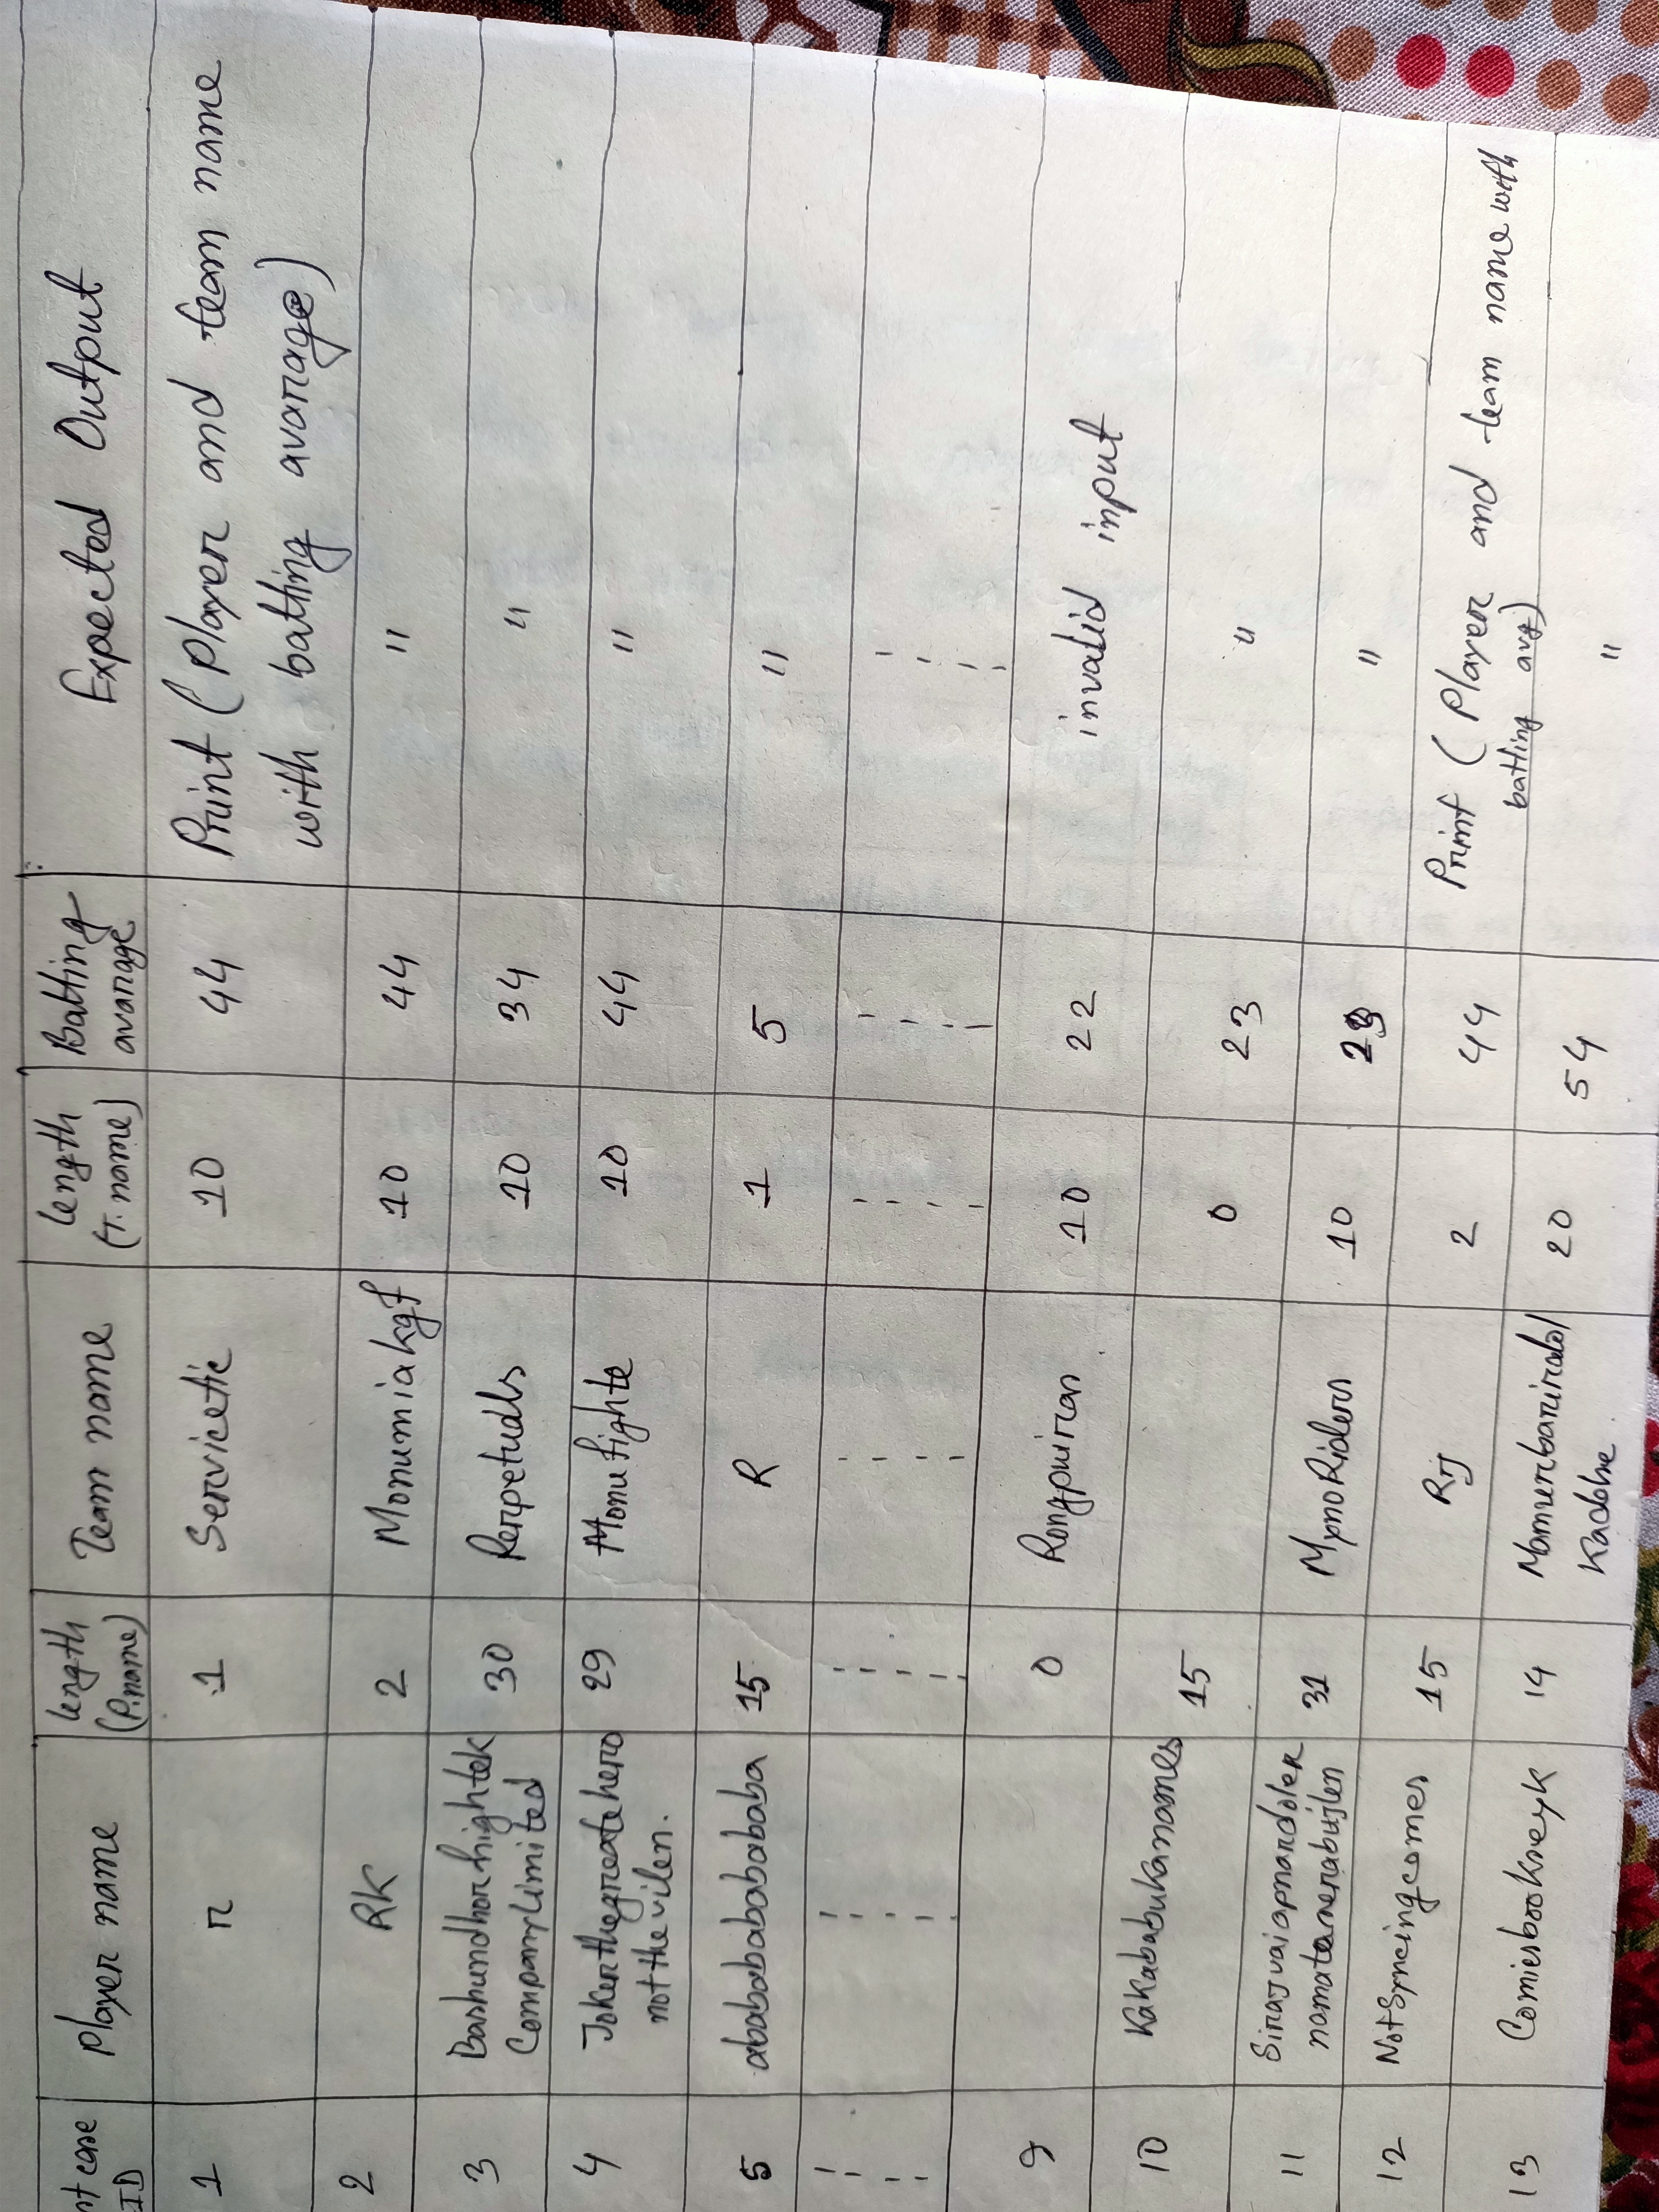 nt case ID | Player name | length (P.name) | Team name | length (T. name) | Batting avarage | Expected Output
1 | r | 1 | Servicetic | 10 | 44 | Print (Player and team name with batting avarage)
2 | RK | 2 | Monumiakgf | 10 | 44 | "
3 | Bashundhorhightek Companylimited | 30 | Perpetuals | 10 | 34 | "
4 | Jokerthegreatehero notthevilen. | 29 | Monufighte | 10 | 44 | "
5 | abababababababa | 15 | R | 1 | 5 | "
9 | | 0 | Rongpuiran | 10 | 22 | invalid input
10 | Kakababukanames | 15 | | 0 | 23 | "
11 | Sirajvaiapnardoler | 31 | MpnoRiders | 10 | 23 | "
12 | NotSyncingcomes | 15 | Rrj | 2 | 44 | Print (Player and team name with batting avg)
13 | | 14 | | 20 | 54 | "